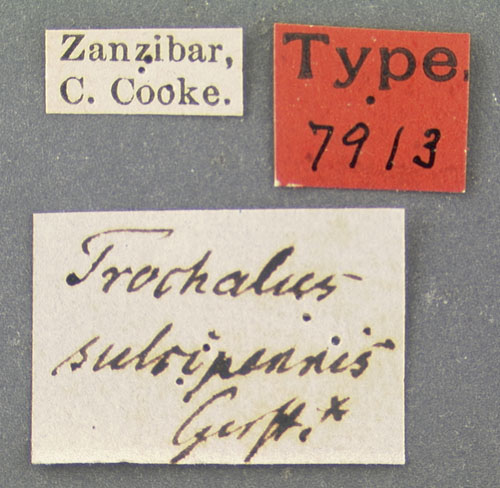 Zanzibar,
C. Cooke.
Type.
7913
Trochalus
sulcipennis
Gerst.*